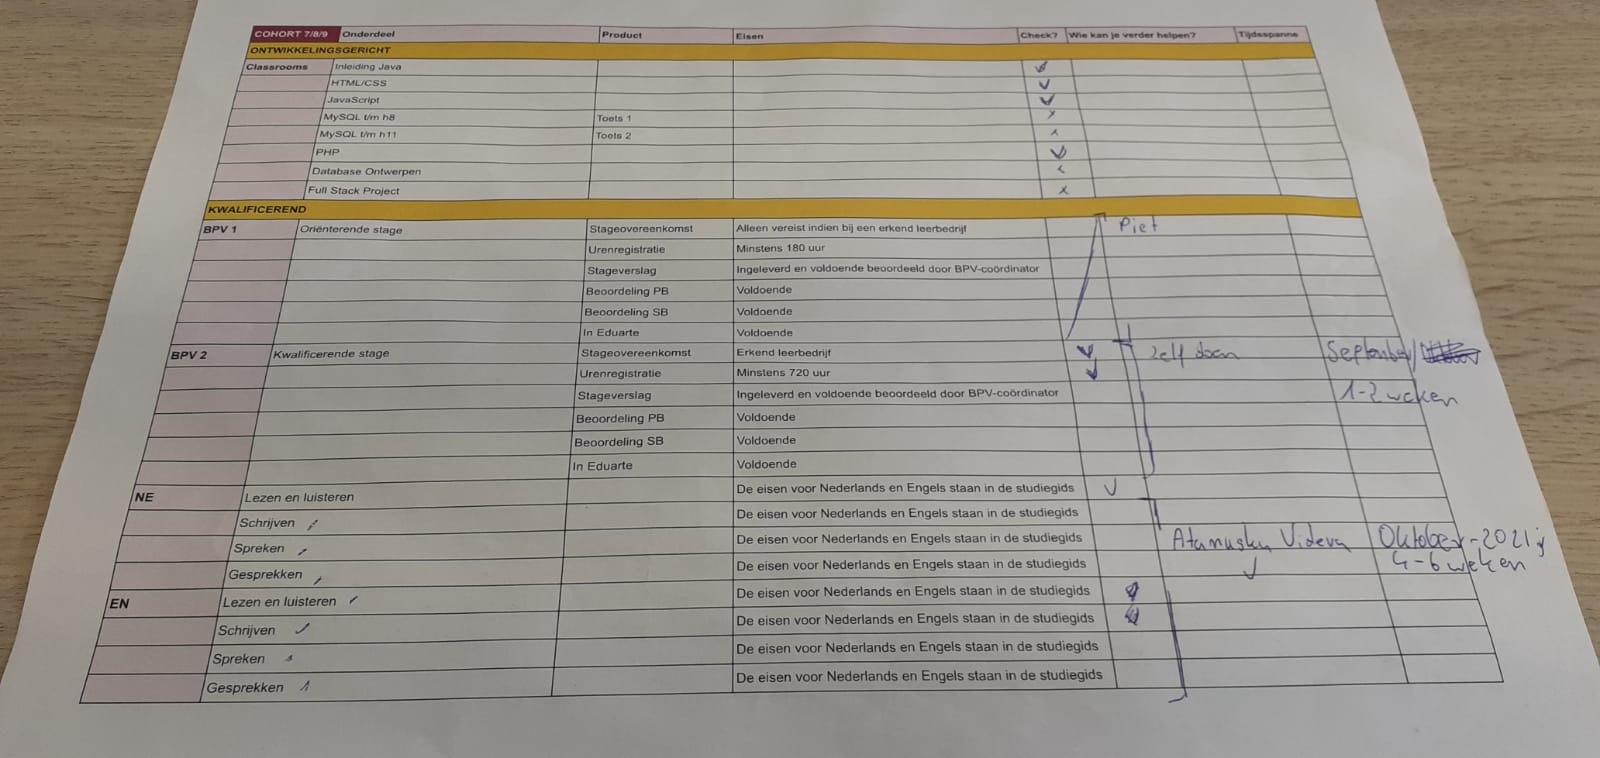 COHORT 7/8/9 Onderdeel Product Eisen Check? Wie kan je verder helpen? Tijdsspanne
ONTWIKKELINGSGERICHT
Classrooms Inleiding Java
HTML/CSS
JavaScript
MySQL t/m h8 Toets 1
MySQL t/m h11 Toets 2
PHP
Database Ontwerpen
Full Stack Project
KWALIFICEREND
BPV 1 Oriënterende stage Stageovereenkomst Alleen vereist indien bij een erkend leerbedrijf Piet
Urenregistratie Minstens 180 uur
Stageverslag Ingeleverd en voldoende beoordeeld door BPV-coördinator
Beoordeling PB Voldoende
Beoordeling SB Voldoende
In Eduarte Voldoende
BPV 2 Kwalificerende stage Stageovereenkomst Erkend leerbedrijf zelf doen September/
Urenregistratie Minstens 720 uur
Stageverslag Ingeleverd en voldoende beoordeeld door BPV-coördinator 1-2 weken
Beoordeling PB Voldoende
Beoordeling SB Voldoende
In Eduarte Voldoende
NE Lezen en luisteren De eisen voor Nederlands en Engels staan in de studiegids
Schrijven De eisen voor Nederlands en Engels staan in de studiegids
Spreken De eisen voor Nederlands en Engels staan in de studiegids Videva Oktober-2021
Gesprekken De eisen voor Nederlands en Engels staan in de studiegids 4-6 weken
EN Lezen en luisteren De eisen voor Nederlands en Engels staan in de studiegids
Schrijven De eisen voor Nederlands en Engels staan in de studiegids
Spreken De eisen voor Nederlands en Engels staan in de studiegids
Gesprekken De eisen voor Nederlands en Engels staan in de studiegids